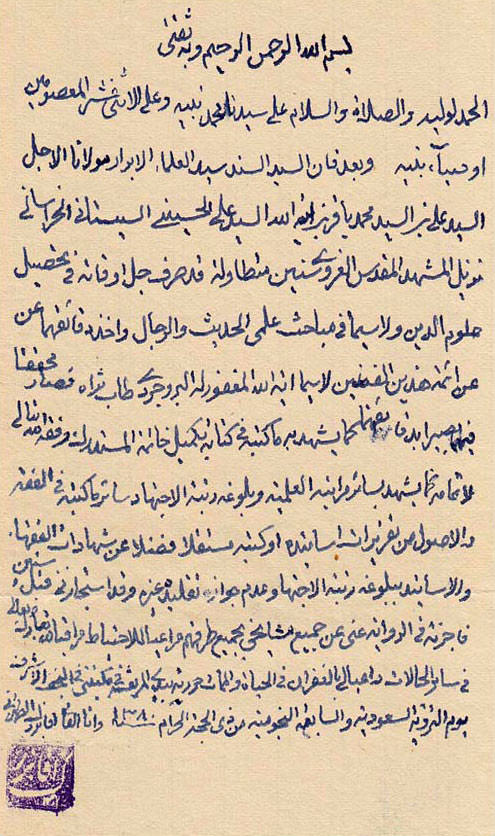 بسم الله الرحمن الرحيم وبه ثقتي
الحمد لوليه والصلاة والسلام على سيدنا محمد نبيه وعلى الاثنى عشر المعصومين
اوصياء نبيه وبعد فان السيد السند سيد العلماء الابرار مولانا الاجل
السيد علي بن السيد محمد باقر بن السيد علي الحسيني السيستاني الخراساني
نزيل المشهد المقدس الغروي سنين متطاولة قد صرف جل اوقاته في تحصيل
علوم الدين ولا سيما في مباحث علمي الحديث والرجال واخذ دقائقهما عن
عن ائمة هذين الفنين لاسيما آية الله المغفور له البروجردي طاب ثراه فصار محققا
فيهما بصيرا بدقائقهما كما يشهد به ما كتبه في كتابه تكميل خاتمة المستدرك وفقه الله تعالى
لاتمامه كما يشهد بسائر مراتبه العلمية وبلوغه رتبة الاجتهاد سائر ما كتبه في الفقه
والاصول من تقريرات اساتيذه او كتبه مستقلا فضلا عن شهادات الفقهاء
والاساتيذ ببلوغه رتبة الاجتهاد وعدم جواز تقليده غيره وقد استجازني قبل سنين
فاجزته في الرواية عني عن جميع مشايخي بجميع طرقهم مراعيا للاحتياط مراقبا
في سائر الحالات داعيا لي بالغفران في الحياة والممات حررته بيدي المرتعشة في مكتبتي في النجف الاشرف
يوم التروية السعودية والسابعة النجومية من ذي الحجة الحرام ١٣٨٠ وانا الفاني آقا بزرك الطهراني